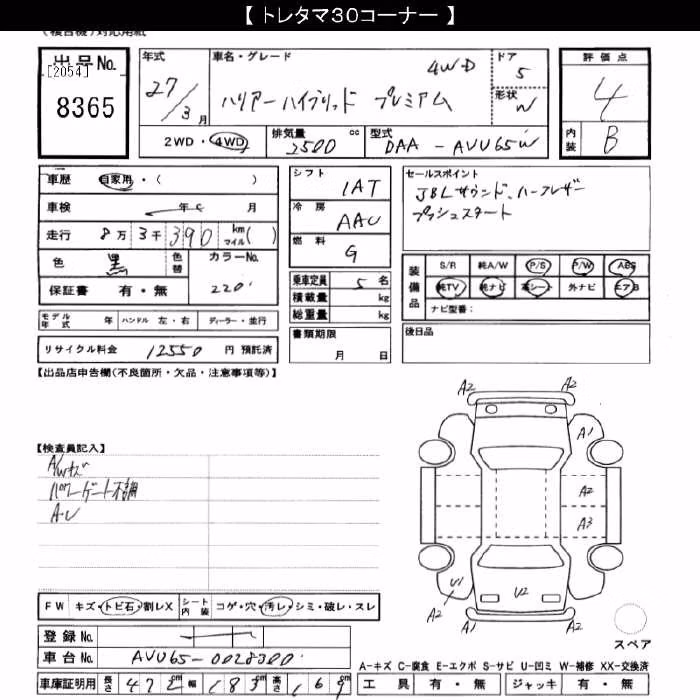 【 トレタマ30コーナー 】
出品No.
[2054]
8365
年式
27/3月
車名・グレード
4WD
ハリアーハイブリッド プレミアム
ドア
5
形状
W
評価点
4
内装
B
2WD・4WD
排気量
2500 cc
型式
DAA-AVU65W
車歴 自家用・( )
車検 年 月
走行 8万3千390 kmマイル( )
色 黒 色替 カラーNo.
220
保証書 有・無
モデル年式 年 ハンドル 左・右 ディーラー・並行
リサイクル料金 12550 円 預託済
シフト
IAT
冷房
AAC
燃料
G
乗車定員 5 名
積載量 kg
総重量 kg
書類期限
月 日
セールスポイント
JBLサウンド、ハーフレザー
プッシュスタート
装備品
S/R 純A/W P/S P/W ABS
純TV 純ナビ 革シート 外ナビ エアB
ナビ型番:
後日品
【出品店申告欄(不良箇所・欠品・注意事項等)】
【検査員記入】
A/Wキズ
パワーゲート不調
A・U
A2 A2
A1
A2
A3
U1 U2
A2 A2 A1
スペア
FW キズ・トビ石・割レX シート内装 コゲ・穴・汚レ・シミ・破レ・スレ
登録No.
車台No. AVU65-0028300
車庫証明用 長さ 472cm 幅 183cm 高さ 169
A-キズ C-腐食 E-エクボ S-サビ U-凹ミ W-補修 XX-交換済
工具 有・無 ジャッキ 有・無